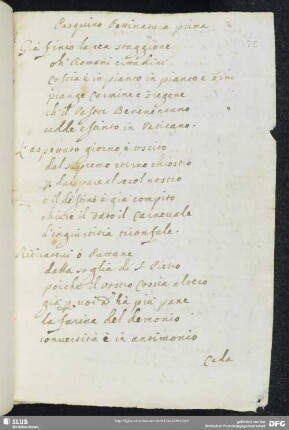 Pasquino Pettinatura prima
Già finío la rea staggione
oh Romani cittadini
Coscia è in pianto in pianto e
piange Carmine e Diogene
ch'il Pastor Beneventano
cadde estinto in Vaticano.
L'aspettato giorno è uscito
dal supremo eterno chiostro
p dar pace al secol nostro
e il destino è già compito
chiuse il Dato il Carnevale
d'ingiustitia trionfale.
ò Puttane
dalla soglia di S. Pietro
poiche il vostro Coscia
già p voi n ha più pane
la farina del demonio
convertita è in antimonio
Cada
SLUB
DFG